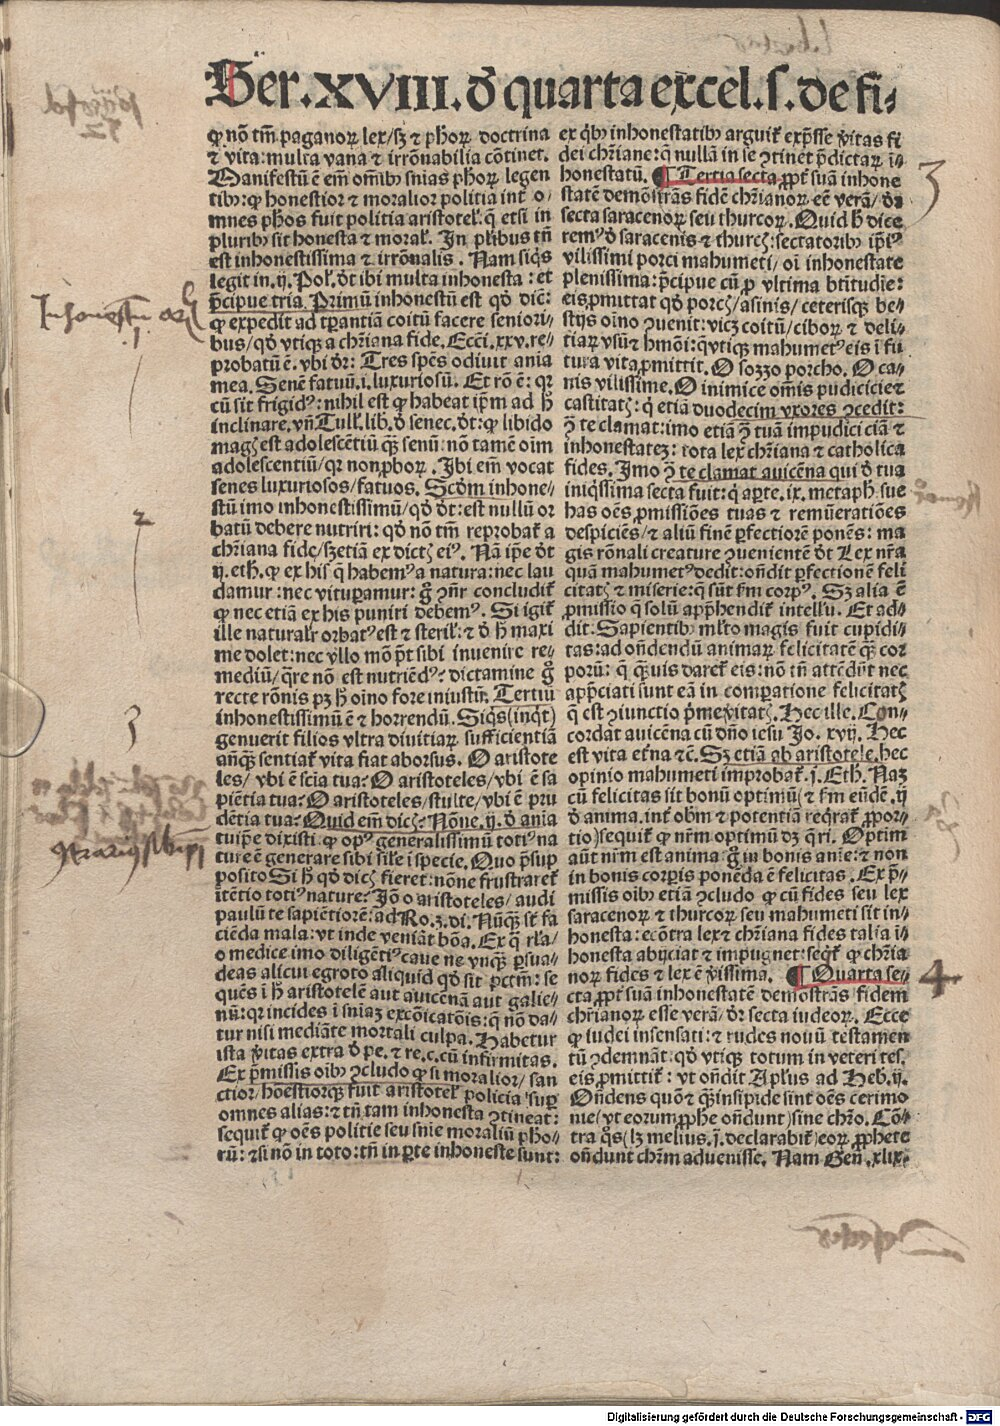 Ser.XVIII.đ quarta excel.s.de fi⸗
ꝙ nō tm̄ paganoꝝ lex/sꝫ ⁊ ph̄oꝝ doctrina
⁊ vita: multa vana ⁊ irrōnabilia cōtinet.
Manifestū ē em̄ om̄ibꝰ snīas ph̄oꝝ legen
tibꝰ: ꝙ honestior ⁊ moralior politia int̄ o⸗
mnes ph̄os fuit politia aristotel̓. q̄ etsi in
pluribꝰ sit honesta ⁊ moral̓. In pl̓ibus tn̄
est inhonestissima ⁊ irrōnalis. Nam siq̇s
legit in.ij. Pol̓. đt ibi multa inhonesta: et
p̄cipue tria. Primū inhonestū est qđ dic̄:
ꝙ expedit ad tꝑantiā coitū facere seniori⸗
bus/qđ vtiqꝫ a chr̄iana fide. Ecc̄i.xxv.re⸗
probatū ē. vbi đr: Tres spēs odiuit anīa
mea. Senē fatuū.i. luxuriosū. Et rō ē: qꝛ
cū sit frigidꝰ: nihil est ꝙ habeat ip̄m ad h̄
inclinare. vn̄ Tull̓. lib̓. đ senec. đt: ꝙ libido
magꝭ est adolescētiū qꝫ̄ senū: nō tamē oīm
adolescentiū/qꝛ non ꝓboꝝ. Ibi em̄ vocat
senes luxuriosos/fatuos. Scđm inhone⸗
stū imo inhonestissimū/qđ đt: est nullū or
batū debere nutriri: qđ nō tm̄ reprobat̄ a
chr̄iana fide/sꝫ etiā ex dictꝭ eiꝰ. Nā ip̄e đt
ij. eth̓. ꝙ ex his q̄ habemꝰ a natura: nec lau
damur: nec vituꝑamur: g̊ ꝯn̄r concludit̄
ꝙ nec etiā ex his puniri debemꝰ. Si igit̄
ille naturalr̓ orbatꝰ est ⁊ steril̓: ⁊ đ h̄ maxi
me dolet: nec vllo mō pōt sibi inuenire re⸗
mediū/q̄re nō est nutriēdꝰ: dictamine g̊
recte rōnis pꝫ h̄ oīno fore iniustū. Tertiū
inhonestissimū ē ⁊ horrendū. Siq̇s(inq̇t)
genuerit filios vltra diuitiaꝝ sufficientiā
anteqꝫ̄ sentiat̄ vita fiat aborsus. O aristote
les/vbi ē scīa tua: O aristoteles/vbi ē sa
piētia tua: O aristoteles/stulte/vbi ē pru
dētia tua: Quid em̄ dicꝭ: Nōne.ij. đ anīa
tuip̄e dixisti ꝙ opꝰ generalissimū totiꝰ na
ture ē generare sibi sil̓e ī specie. Quo p̄sup
posito Si h̄ qđ dicꝭ fieret: nōne frustraret̄
ītētio totiꝰ nature: Iō o aristoteles/audi
paulū te sapiētiorē: ad Ro.3.di. Nūqꝫ̄ st̄ fa
ciēda mala: vt inde veniāt bōa. Ex q̄ rl̓a/
o medice imo diligētiꝰ caue ne vnqꝫ̄ ꝑsua⸗
deas alicui egroto aliquid qđ sit pctm̄: se
quēs ī h̄ aristotelē aut auicēnā aut galie⸗
nū: qꝛ incides ī snīaꝫ excōicatōis: q̄ nō da⸗
tur nisi mediāte mortali culpa. Habetur
ista v̄itas extra đ pe. ⁊ re.c.cū infirmitas.
Ex p̄missis oībꝰ ꝯcludo ꝙ si moralior/san
ctior/hōestiorqꝫ fuit aristotel̓ policia suꝑ
omnes alias: ⁊ tn̄ tam inhonesta ꝯtineat:
sequit̄ ꝙ oēs politie seu snīe moraliū pho⸗
rū: ⁊ si nō in toto: tn̄ in ꝑte inhoneste sunt:
ex q̇bꝰ inhonestatibꝰ arguit̄ exp̄sse v̄itas fi
dei chr̄iane: q̄ nullā in se ꝯtinet p̄dictaꝝ ī⸗
honestatū. ¶ Tertia secta ꝓpt̄ suā inhone
statē demōstrās fidē chr̄ianoꝝ eē verā/đr
secta saracenoꝝ seu thurcoꝝ. Quid h̄ dice
rem̓ đ saracenis ⁊ thurcꝭ: sectatoribꝰ ip̄iꝰ
vilissimi porci mahumeti/oī inhonestate
plenissima: p̄cipue cū ꝓ vltima btītudie:
eis ꝓmittat qđ porcꝭ/asinis/ceterisqꝫ be⸗
stijs oīno ꝯuenit: vicꝫ coitū/ciboꝝ ⁊ deli⸗
tiaꝝ vsū ⁊ hmōi: q̄ vtiqꝫ mahumetꝰ eis ī fu
tura vita ꝓmittit. O sozzo porcho. O ca⸗
nis vilissime. O inimice om̄is pudicicie ⁊
castitatꝭ: q̇ etiā duodecim vxores ꝯcedit:
ꝯ̄ te clamat: imo etiā ꝯ̄ tuā impudiciciā ⁊
inhonestateꝫ: tota lex chr̄iana ⁊ catholica
fides. Imo ꝯ̄ te clamat auicēna qui đ tua
iniq̇ssima secta fuit: q̇ aꝑte.ix. metaph̓. sue
has oēs ꝓmissiōes tuas ⁊ remūeratiōes
despiciēs/⁊ aliū finē ꝑfectiorē ponēs: ma
gis rōnali creature ꝯuenientē đt Lex nr̄a
quā mahumetꝰ dedit: ōndit ꝑfectionē feli
citatꝭ ⁊ miserie: q̄ sūt km̄ corpꝰ. Sꝫ alia ē
ꝓmissio q̄ solū app̄hendit̄ intellu̓. Et ad⸗
dit: Sapientibꝰ ml̓to magis fuit cupidi⸗
tas: ad ōndendū animaꝝ felicitatē qꝫ̄ cor
porū: q̄ qꝫ̄uis daret̄ eis: nō tn̄ attēdūt nec
app̄ciati sunt eā in comꝑatione felicitatꝭ
q̄ est ꝯiunctio p̄me v̄itatꝭ. Hec ille. Con⸗
cordat auicēna cū dn̄o iesu Io. xvij. Hec
est vita et̄na ⁊c̄. Sꝫ etiā ab aristotele. hec
opinio mahumeti improbat̄.j. Eth̓. Naꝫ
cū felicitas sit bonū optimū(⁊ km̄ eūdē.ij
đ anima. int̄ obm̄ ⁊ potentiā req̇rat̄ ꝓpor⸗
tio)sequit̄ ꝙ nr̄m optimū dꝫ q̄ri. Optim
aūt nr̄m est anima: g̊ in bonis aīe: ⁊ non
in bonis corꝑis ponēda ē felicitas. Ex p̄⸗
missis oībꝰ etiā ꝯcludo ꝙ cū fides seu lex
saracenoꝝ ⁊ thurcoꝝ seu mahumeti sit in⸗
honesta: ecōtra lex ⁊ chr̄iana fides talia ī⸗
honesta abijciat ⁊ impugnet: seq̇t̄ ꝙ chr̄ia
noꝝ fides ⁊ lex ē v̄issima. ¶ Quarta se⸗
cta ꝓpt̄ suā inhonestatē demōstrās fidem
chr̄ianoꝝ esse verā/đr secta iudeoꝝ. Ecce
ꝙ iudei insensati: ⁊ rudes nouū testamen
tū ꝯdemnāt: qđ vtiqꝫ totum in veteri tes.
eis ꝓmittit̄: vt ōndit Apl̓us ad Heb.ij.
Ōndens quō ⁊ qꝫ̄ insipide sint oēs cerimo
nie/vt eorum ꝓphe ōndunt)sine chr̄o. Cō⸗
tra q̊s(lꝫ melius.j. declarabit̄)eoꝝ ꝓphete
ōndunt chr̄m aduenisse. Nam Gen̄.xlix.
1
2
3
3
4
Digitalisierung gefördert durch die Deutsche Forschungsgemeinschaft - DFG